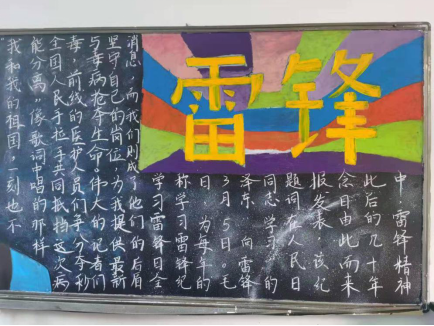 雷锋
我和我的祖国，一刻也不
能分离”像歌词中唱的那样
全国人民手拉手共同抵挡这次病
毒，前线的医护人员们争分夺秒
与毒病抢夺生命。伟大的记者们
坚守自己的岗位，为我提供最新
消息，而我们则成了他们的后盾
学习雷锋日全
称学习雷锋纪
日 为每年的
3月5日。毛
泽东 向雷锋
同志 学习的
题词在人民日
报发表，该
念日由此而来
此后的几十年
中，雷锋精神